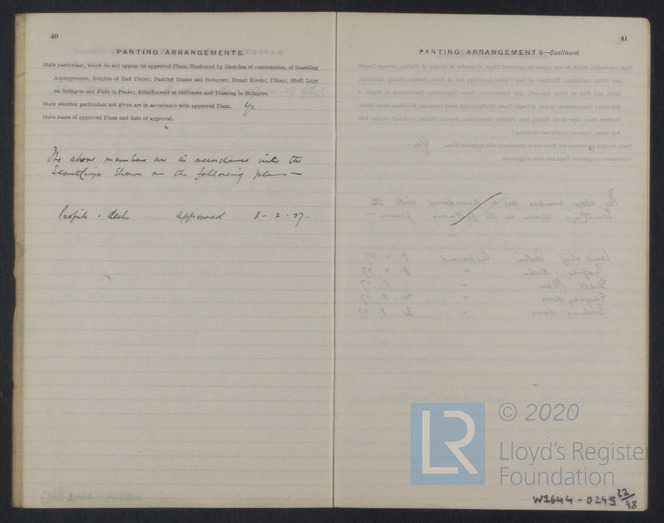 40
PANTING ARRANGEMENTS.
State particulars, which do not appear on approved Plans, illustrated by sketches of construction, of Scantling
Arrangements, Heights of Tank Floors; Panting Beams and Stringers; Breast Hooks; Pillars, Shell Lugs
on Stringers and Flats in Peaks; Attachments of Stiffeners and Framing to Stringers.
State whether particulars not given are in accordance with approved Plans. Yes
State name of approved Plans and date of approval.
The above members are in accordance with the
Scantlings shown on the following plans —
Profile & decks approved 8-2-27.
41
PANTING ARRANGEMENTS—Continued.
LR
© 2020
Lloyd's Register
Foundation
W1644-0245 22/48